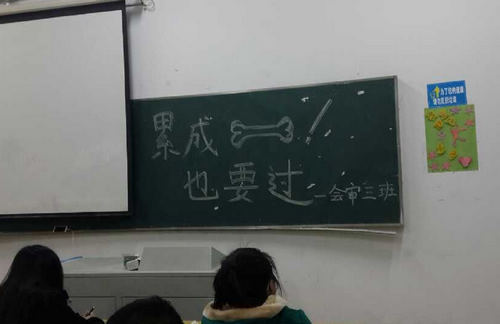 累成
也要过
—会审三班